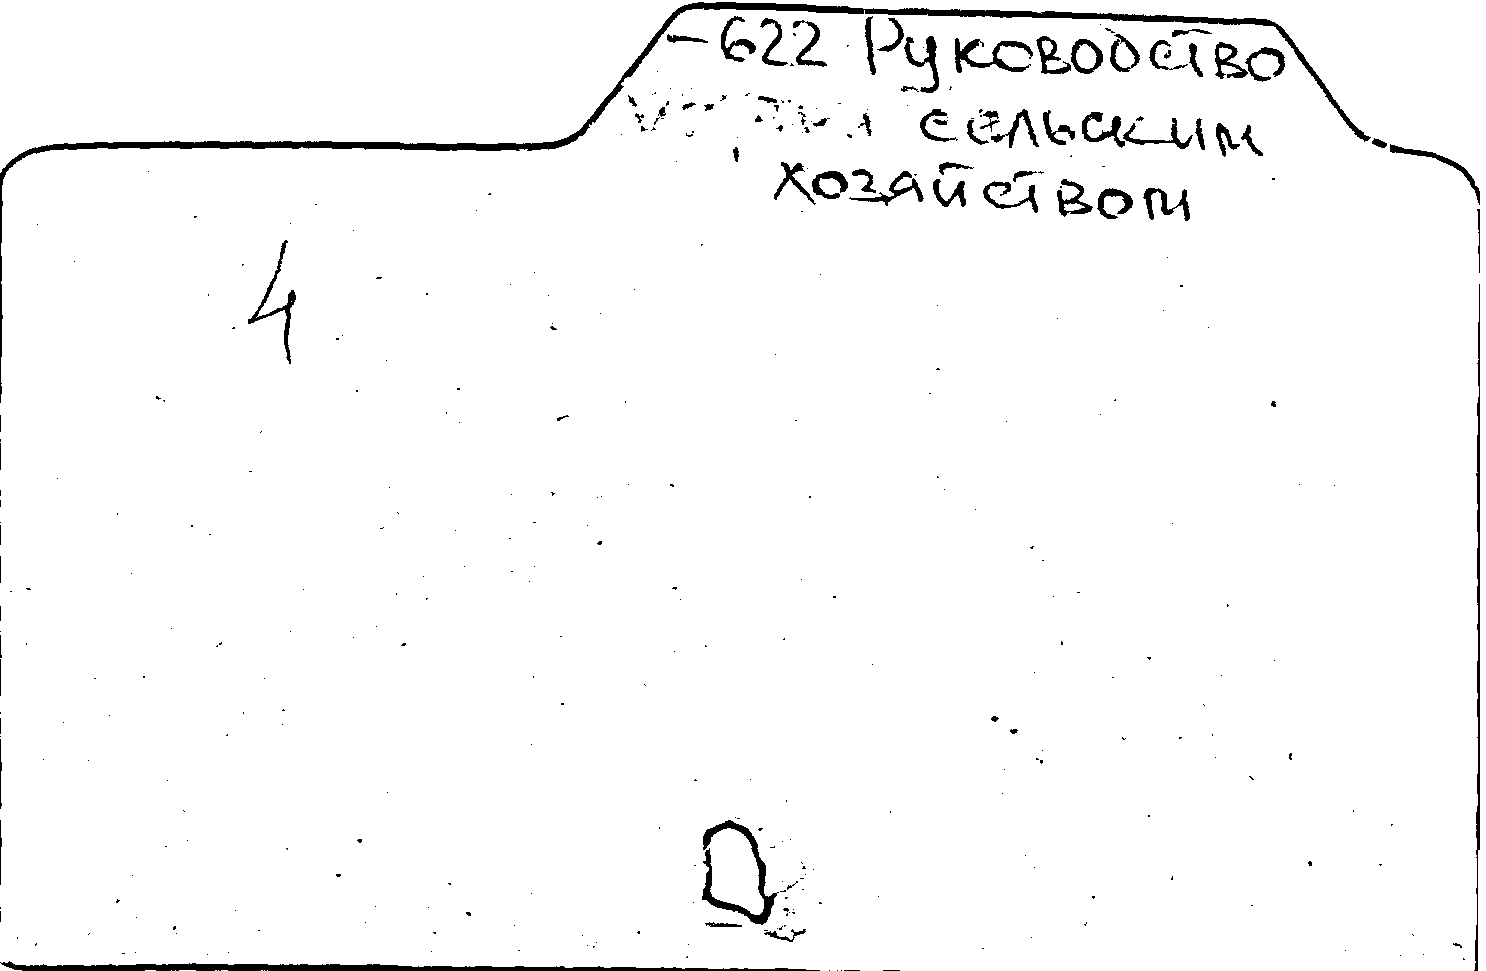 -622 Руководство
сельским
хозяйством
4